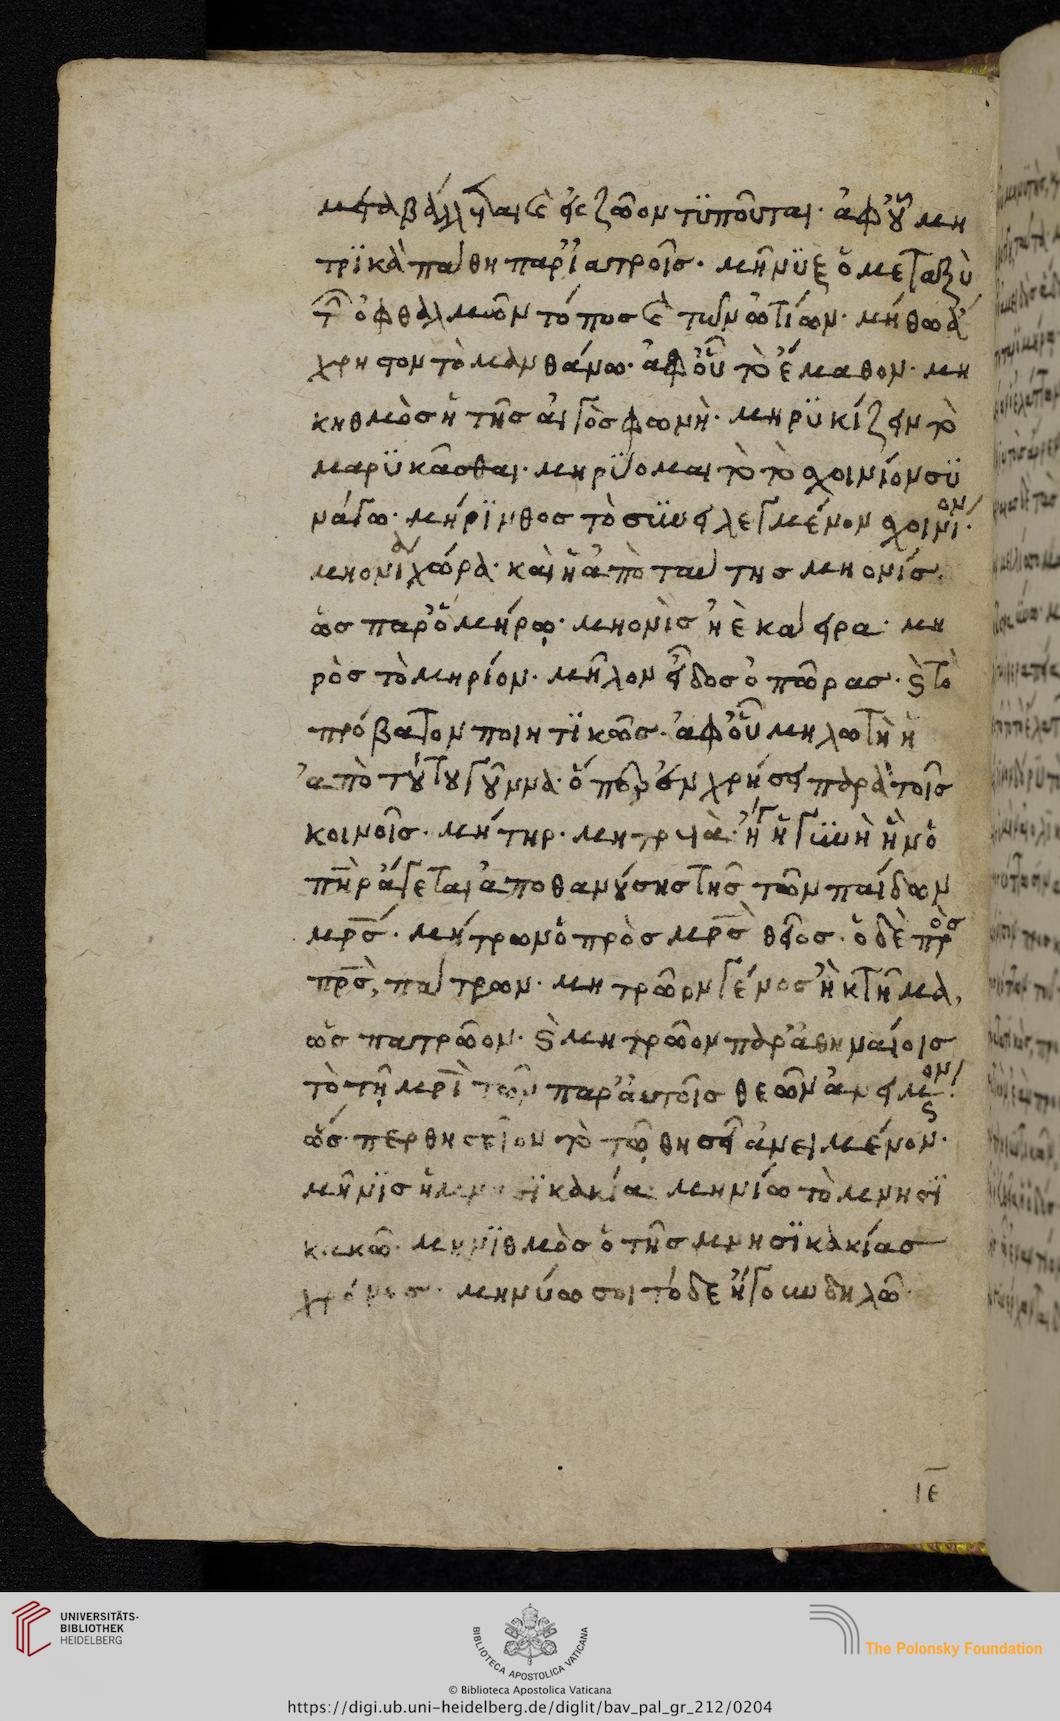 μεταβάλλεται καὶ εἰς ζῶον τϋποῦται· ἀφ' οὗ μη
τρϊκὰ πάθη παρ' ἰατροῖς· μῆνϋξ ὁ μεταξὺ
τῶν ὀφθαλμῶν τόπος καὶ τῶν ὠτίων· μήθω ἀ
χρηστον τὸ μανθάνω· ἀφ' οὗ τὸ ἔμαθον· μη
κηθμὸς ἡ τῆς αἰγὸς φωνὴ· μηρϋκίζειν τὸ
μαρϋκᾶσθαι· μηρϋομαι τὸ τὸ σχοινίον σϋ
νάγω· μήρϊνθος τὸ σϋνειλεγμένον σχοινίον·
μηονὶς χώρα· καὶ ἡ ἀπὸ ταύτης μηονίς·
ὡς παρ' ὁμήρῳ· μηονὶς ἠὲ κάειρα· μη
ρὸς τὸ μηρίον· μῆλον εἶδος ὀπώρας· καὶ τὸ
πρόβατον ποιητϊκῶς· ἀφ' οὗ μηλωτὴ ἡ
ἀπὸ τούτου γοῦννα· ὅπερ ἐν χρήσει παρὰ τοῖς
κοινοῖς· μήτηρ· μητρυιὰ· ἤγουν ἡ γϋνὴ ἣν ὁ
πῆρ ἄγεται ἀποθανούσης τῆς τῶν παίδων
μρς· μήτρων ὁ πρὸς μρς θεῖος· ὁ δὲ πρὸς
πρς, πάτρων· μητρῶον γένος ἢ κτῆμα,
ὡς πατρῶον· καὶ μητρῶον παρ' ἀθηναίοις
τὸ τῇ μρὶ τῶν παρ' αὐτοῖς θεῶν ἀνειμένον·
ὥσπερ θησεῖον τὸ τῷ θησεῖ ἀνειμένον·
μῆνϊς ἡ μνησϊκακία· μηνίω τὸ μνησϊ
κακῶ· μηνϊθμὸς ὁ τῆς μνησϊκακίας
χρόνος· μηνύω σοι τόδε ἤγουν δηλῶ·
ιε
UNIVERSITÄTS-
BIBLIOTHEK
HEIDELBERG
BIBLIOTECA APOSTOLICA VATICANA
The Polonsky Foundation
© Biblioteca Apostolica Vaticana
https://digi.ub.uni-heidelberg.de/diglit/bav_pal_gr_212/0204